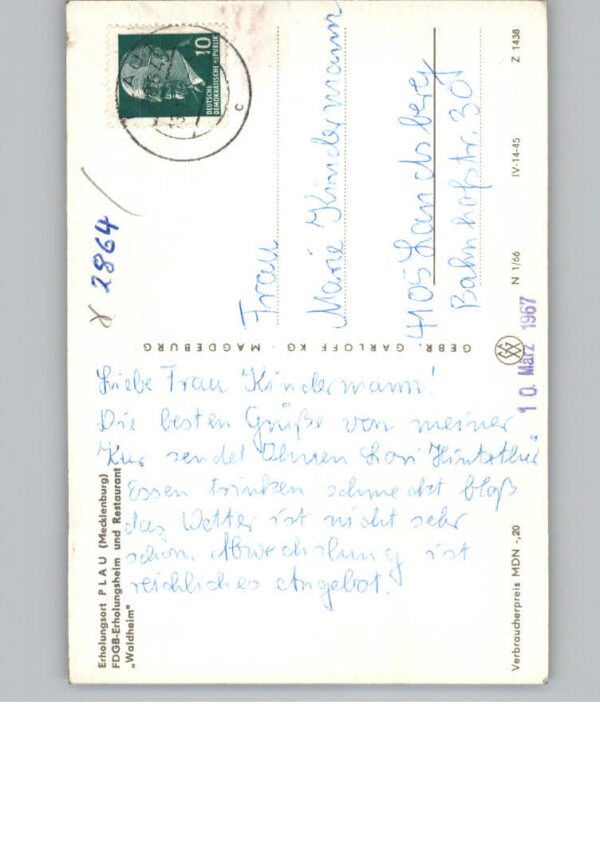 Liebe Frau Kindermann!
Die besten Grüße von meiner
Kur sendet Ihnen Lori
Essen trinken schmeckt bloß
das Wetter ist nicht sehr
schön. Abwechslung ist
reichliches Angebot.
Frau
Marie Kindermann
4105 Landsberg
Bahnhofstr. 30
10
DEUTSCHE
DEMOKRATISCHE REPUBLIK
c
2864
GEBR. GARLOFF KG · MAGDEBURG
10. März 1967
Erholungsort PLAU (Mecklenburg)
FDGB-Erholungsheim und Restaurant
„Waldheim"
Verbraucherpreis MDN -,20
N 1/66
IV-14-45
Z 1438